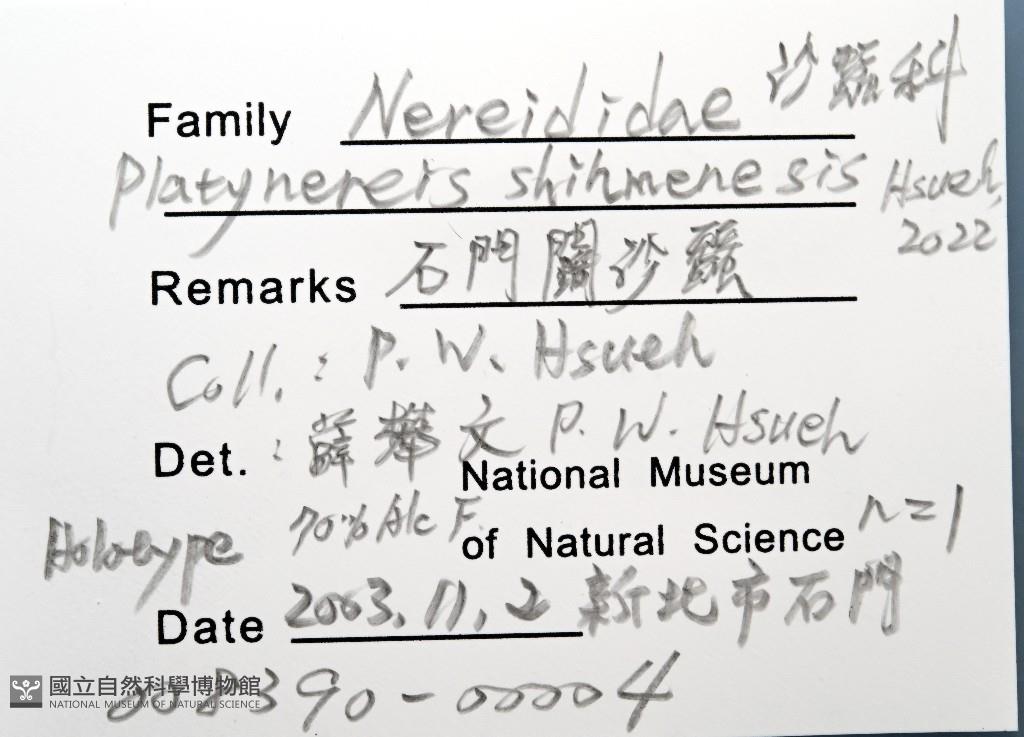 Family Nereididae 沙蠶科
Platynereis shihmenesis Hsueh, 2022
Remarks 石門闊沙蠶
Coll. : P. W. Hsueh
Det. : 薛攀文 P. W. Hsueh
National Museum
Holotype 70% Alc F. of Natural Science n=1
Date 2003.11.2 新北市石門
008390-00004
國立自然科學博物館
NATIONAL MUSEUM OF NATURAL SCIENCE